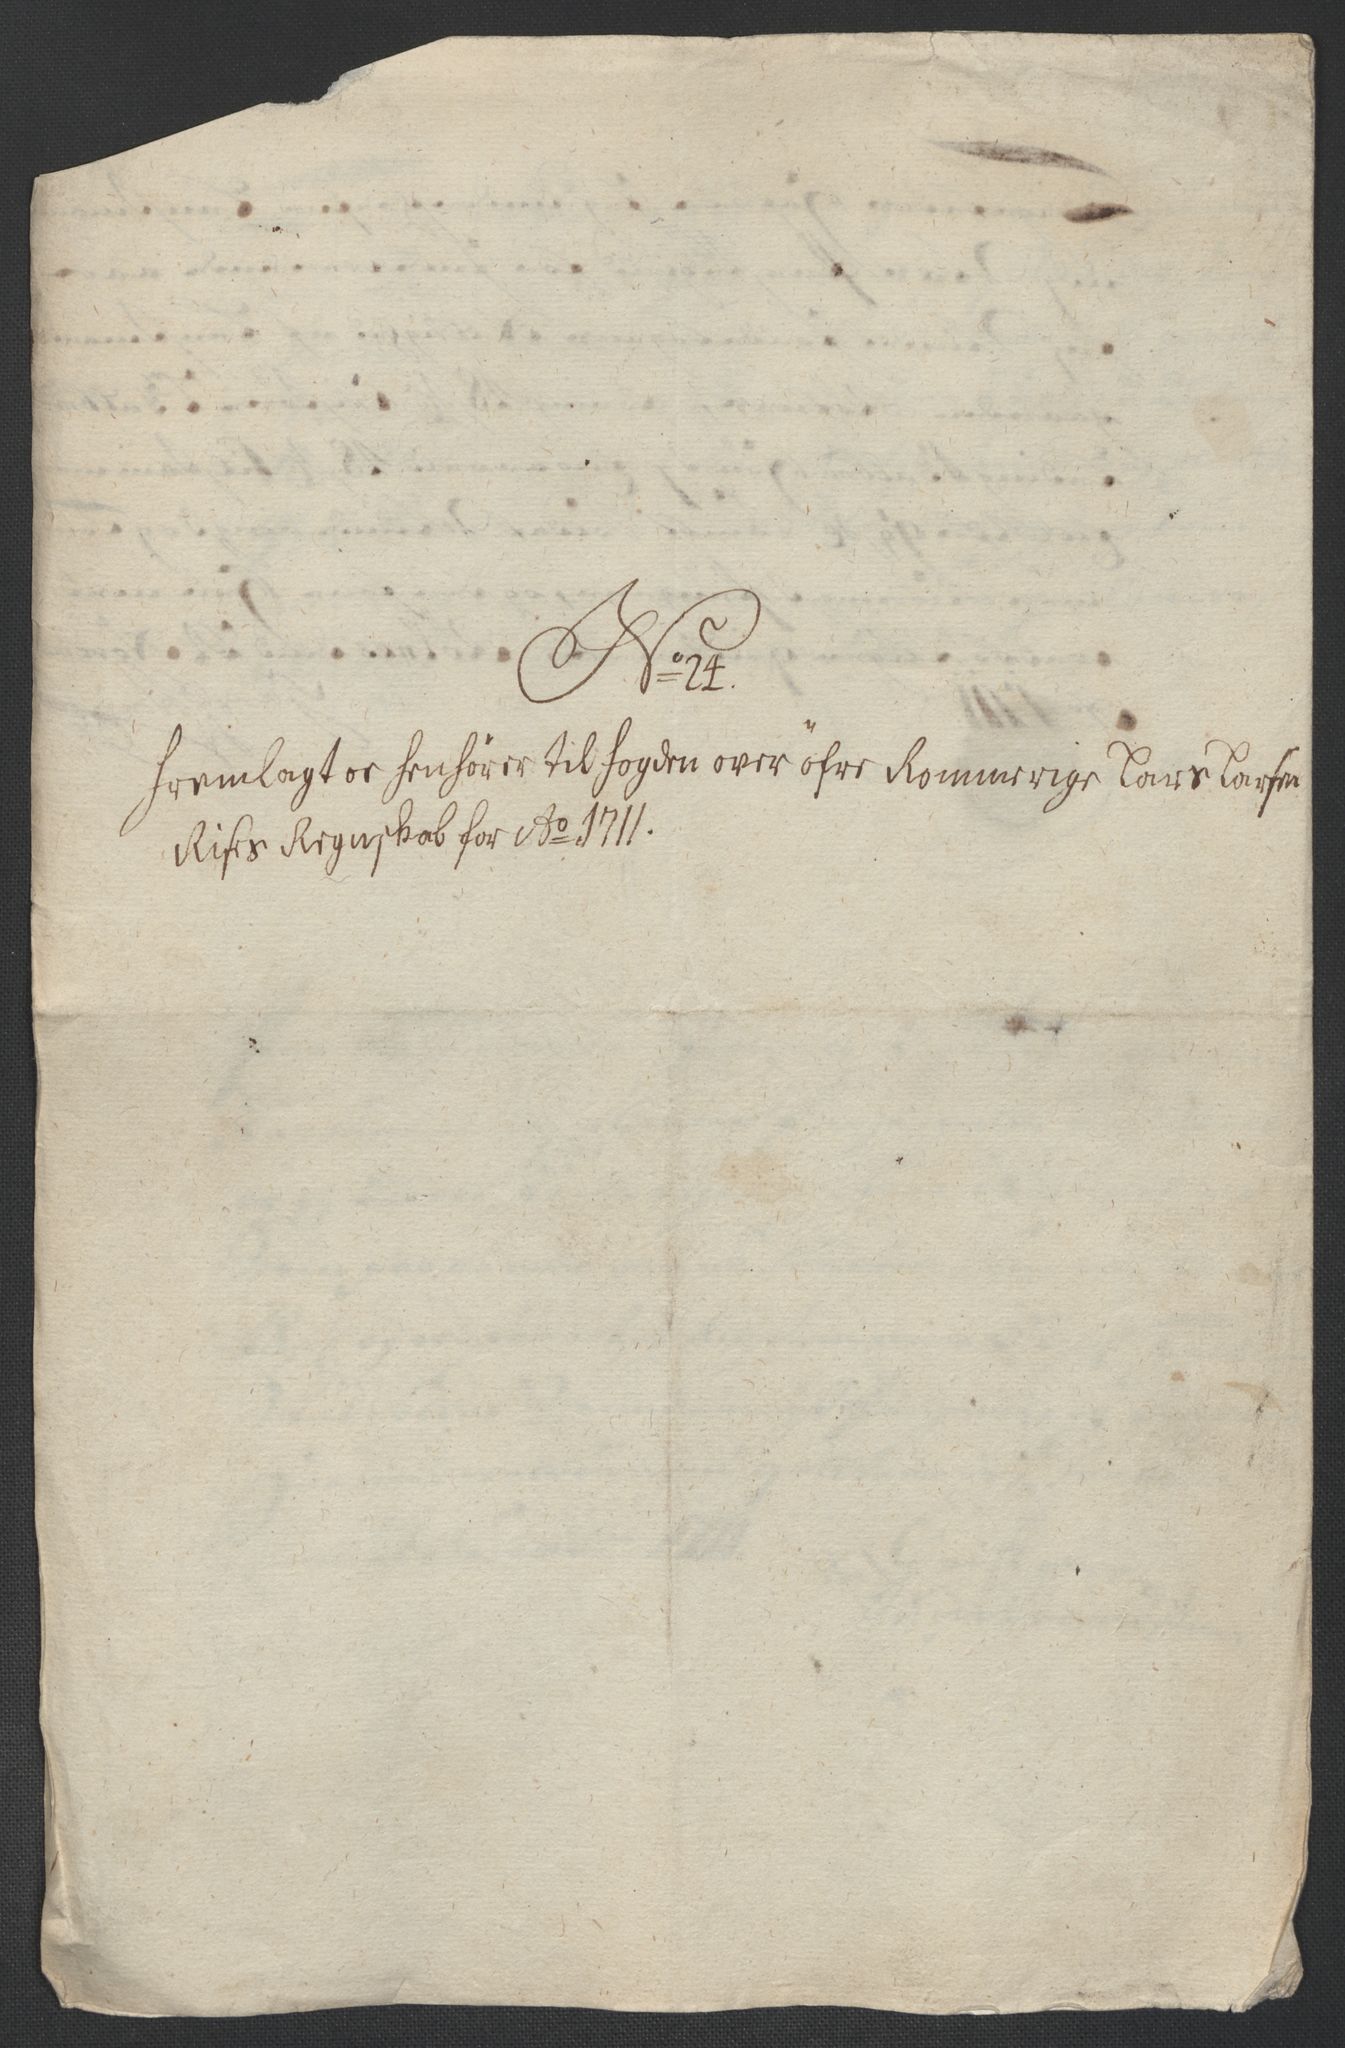 No. 24.
Fremlagt oc henhörer til fogden over öfre Rommerige Lars Larsen
Rises Regnskab for Ao 1711.